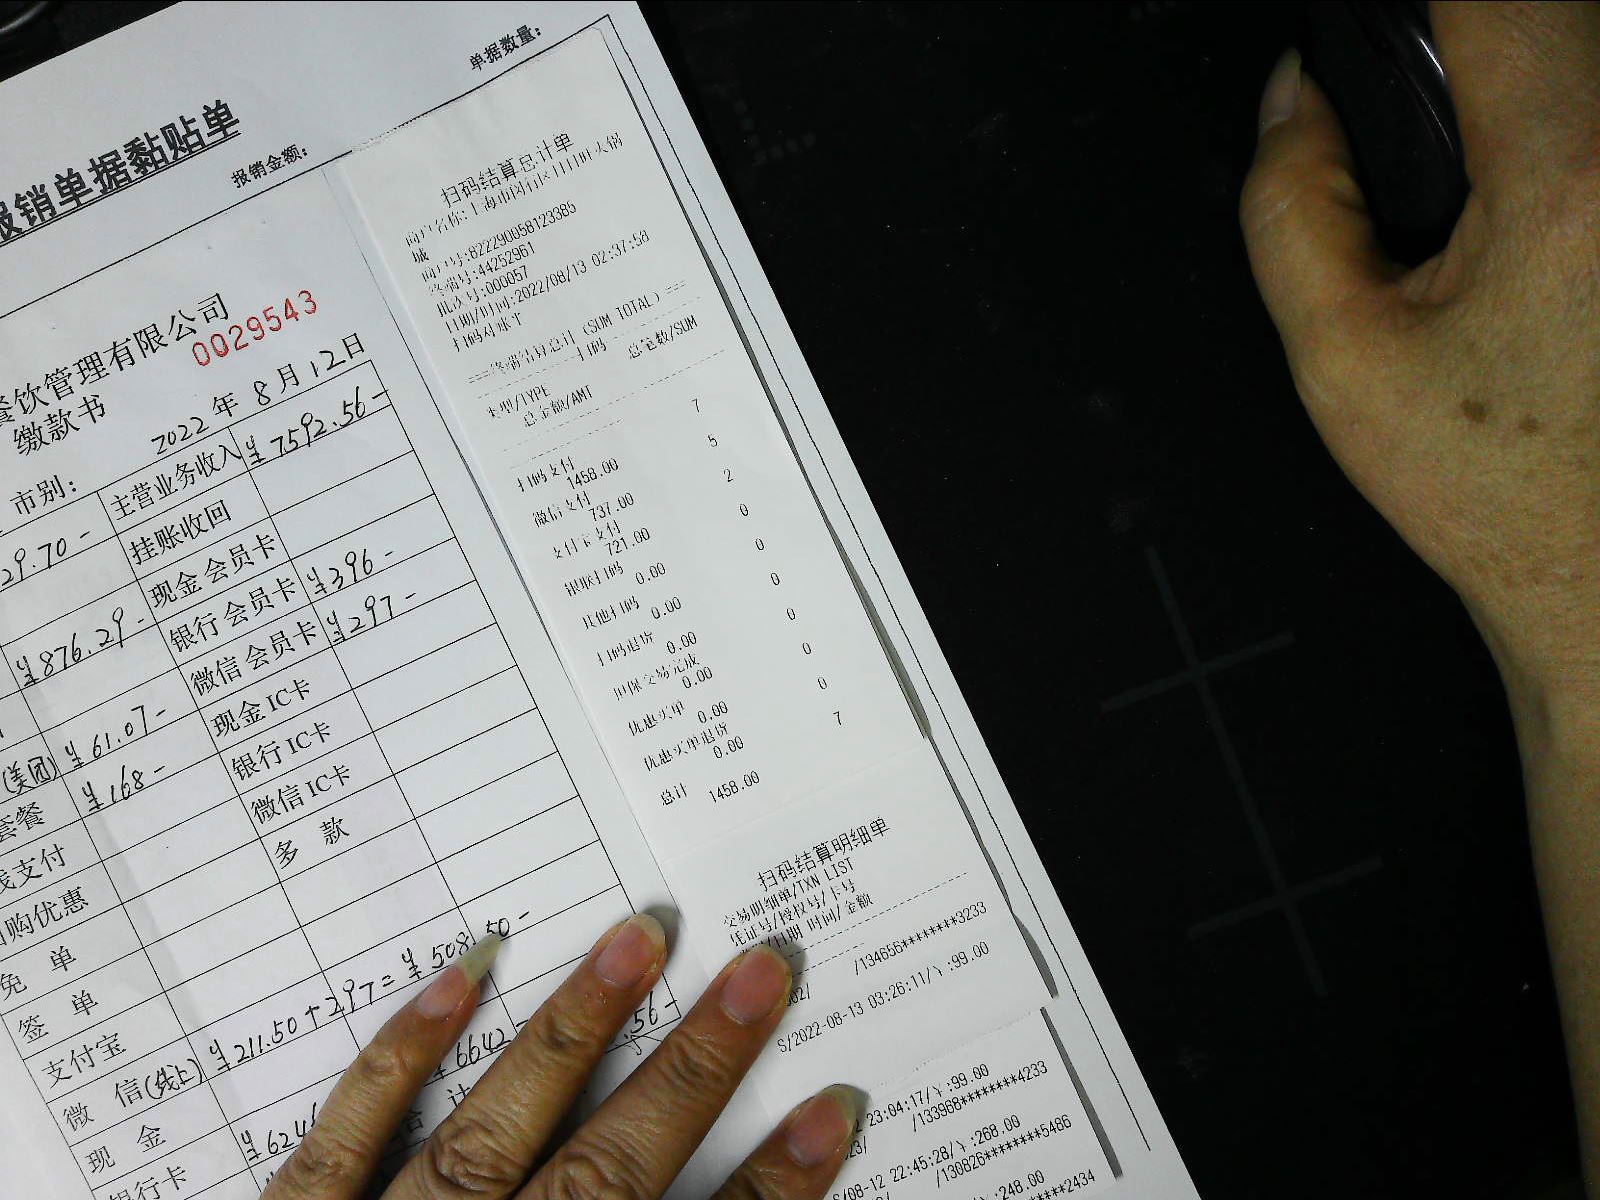 单据数量：
报销单据黏贴单
报销金额：
餐饮管理有限公司
0029543
缴款书
2022年8月12日
市别：
主营业务收入 ¥7592.56-
29.70-
挂账收回
现金会员卡
¥876.29-
银行会员卡 ¥396-
微信会员卡 ¥297-
¥61.07-
现金IC卡
(美团) ¥168-
银行IC卡
套餐
微信IC卡
支付
多 款
购优惠
免 单
签 单
支付宝 ¥211.50+297=¥508.50-
微 信(线上)
现 金
银行卡
扫码结算总计单
城
商户号:82229005812338S
终端号:44252961
批次号:000057
日期/时间:2022/08/13 02:37:58
扫码对账平
===终端结算总计(SUM TOTAL)===
扫码
类型/TYPE 总笔数/SUM
总金额/AMT
扫码支付 7
1458.00
微信支付 5
737.00
支付宝支付 2
721.00
银联扫码 0
0.00
其他扫码 0
0.00
扫码退货 0
0.00
担保交易完成 0
0.00
优惠买单 0
0.00
优惠买单退货 0
0.00
总计 7
1458.00
扫码结算明细单
交易明细单/TXN LIST
凭证号/授权号/卡号
/日期 时间/金额
/134656********3233
S/2022-08-13 03:26:11/\:99.00
23:04:17/\:99.00
/133968********4233
S/08-12 22:45:28/\:268.00
/130826********5486
/\:248.00
********2434